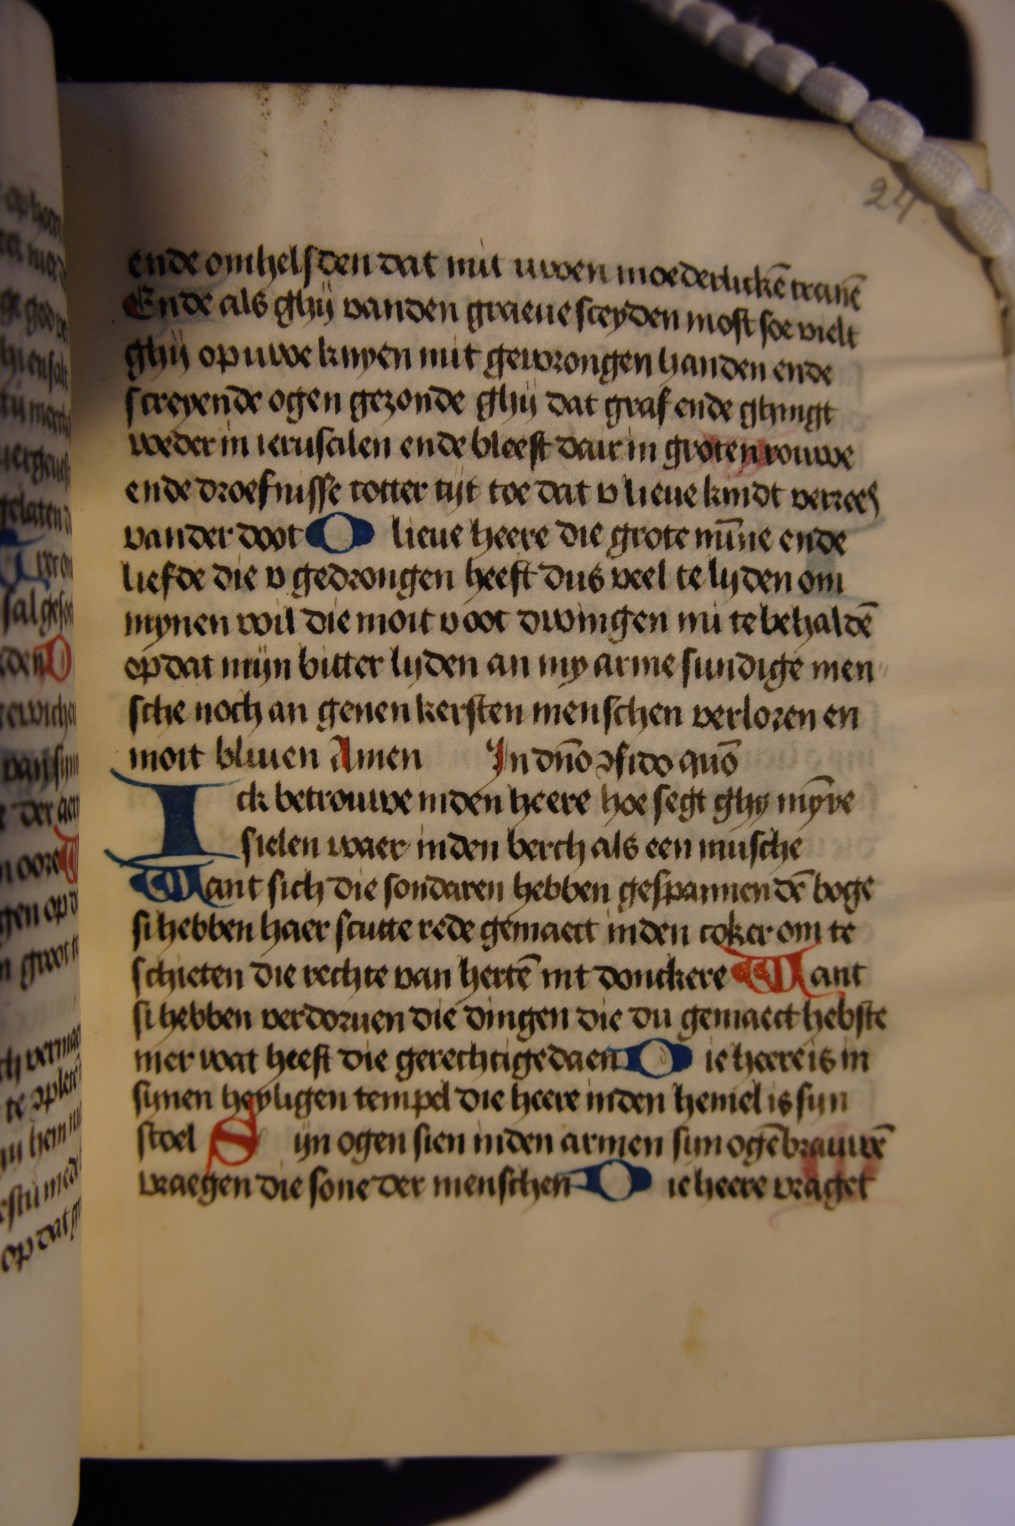 24
ende omhelsden dat mit uwen moederlickē tranē
Ende als ghij vanden graeue sceyden most soe vielt
ghij op uwe knyen mit gewrongen handen ende
screyende ogen gezonde ghij dat graf ende ghingt
weder in ierusalen ende bleeft dair in groten rouwe
ende droefnisse totter tijt toe dat v lieue kindt verrees
vander doot O lieue heere die grote mīne ende
liefde die v gedrongen heeft dus veel te lyden om
mynen wil die moit v oot dwingen mi te behaldē
op dat mijn bitter lyden an my arme sundige men
sche noch an genen kersten menschen verloren en
moit bliuen Amen In dn̄o ɔfido quō
Ick betrouwe inden heere hoe segt ghy mȳre
sielen waer inden berch als een musche
Want sich die sondaren hebben gespannen dē boge
si hebben haer scutte rede gemaect inden coker om te
schieten die rechte van hertē int donckere Want
si hebben verdoruen die dingen die du gemaect hebste
mer wat heeft die gerechtige daen Die heere is in
sijnen heyligen tempel die heere inden hemel is sijn
stoel Sijn ogen sien inden armen sijn ogēbrauwē
vraegen die sone der menschen Die heere vraget